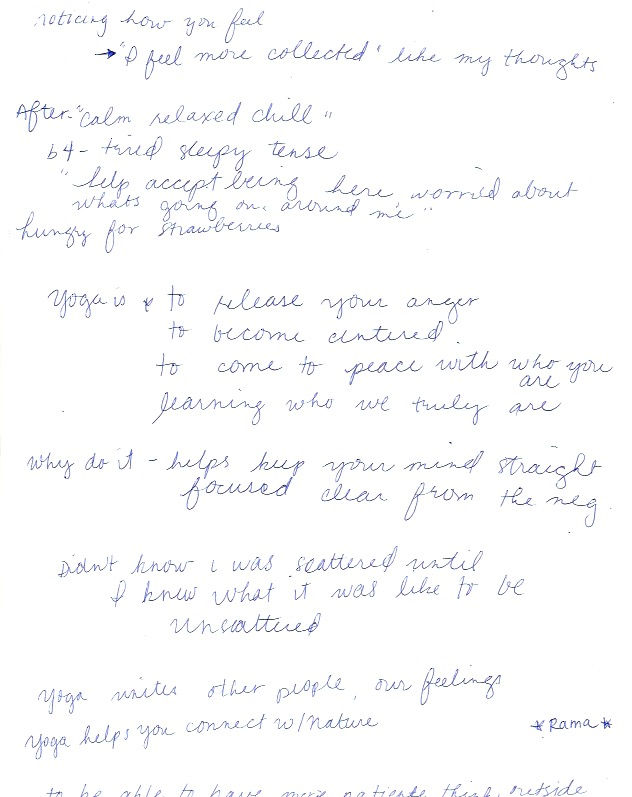 noticing how you feel
→ "I feel more collected" like my thoughts
After - "calm relaxed chill"
b4 - tired sleepy tense
"help accept being here worried about
whats going on around me"
hungry for strawberries
Yoga is * to release your anger
to become centered.
to come to peace with who you
are
learning who we truly are
why do it - helps keep your mind straight
focused clear from the neg.
Didn't know i was scattered until
I knew what it was like to be
unscattered
yoga unites other people, our feelings
yoga helps you connect w/nature
*Rama*
to be able to have more patience think outside